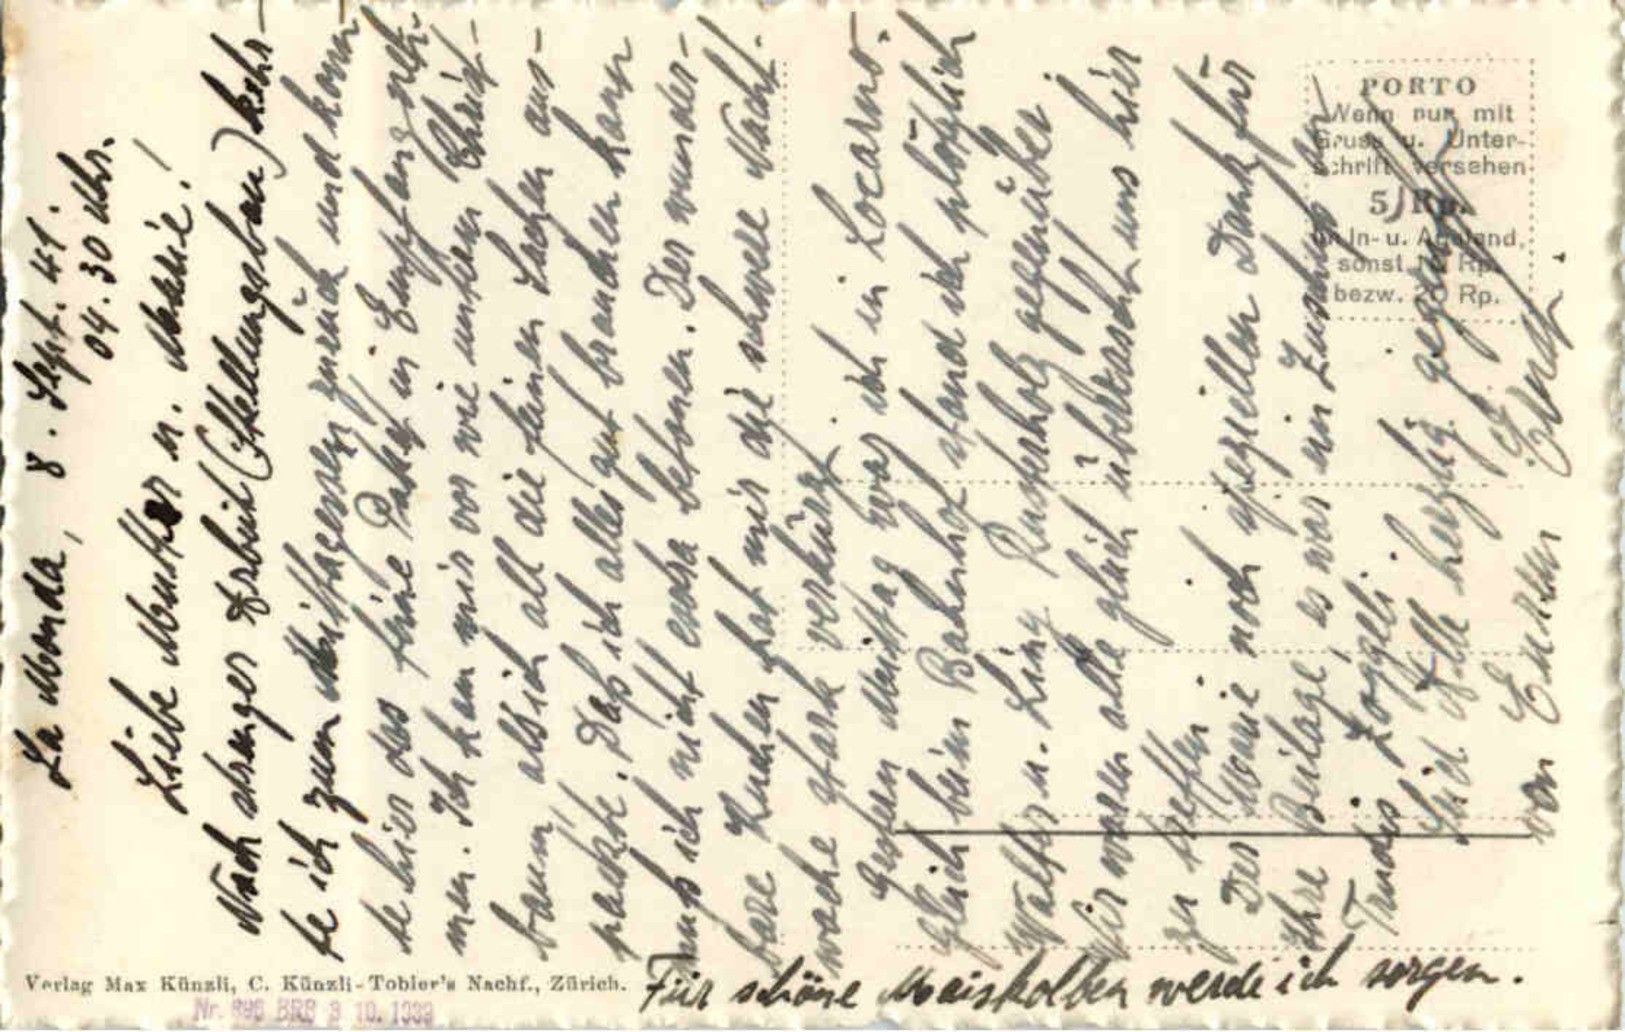 La Monda, 8. Sept. 41.
04.30 Uhr.
Liebe Mutter u. Marie!
Nach strenger Arbeit (Stellungsbau) kehr-
te ich zum Mittagessen zurück und konn-
te hier das feine Paket in Empfang neh-
men. Ich kam mir vor wie unterm Christ-
baum als ich all die feinen Sachen aus-
packte. Daß ich alles gut brauchen kann
muß ich nicht extra betonen. Der wunder-
bare Kuchen hat mir die schwere Nacht-
wache stark verkürzt.
Gestern Mittag war ich in Locarno.
Gleich beim Bahnhof stand ich plötzlich
Walter u. Liny gegenüber
Wir waren alle gleich überrascht uns hier
zu treffen.
Der Marie noch speziellen Dank für
ihre Beilage, es war ein Zuschuss
Trudis Zoggeli.
Seid Alle herzlig gegrüsst
von Eurem
Ernst.
PORTO
Wenn nur mit
Gruss u. Unter-
schrift versehen
5 Rp.
im In- u. Ausland,
sonst 10 Rp.
bezw. 20 Rp.
Verlag Max Künzli, C. Künzli-Tobler's Nachf., Zürich.
Nr. BRB 3 10. 1939
Für schöne Maiskolben werde ich sorgen.